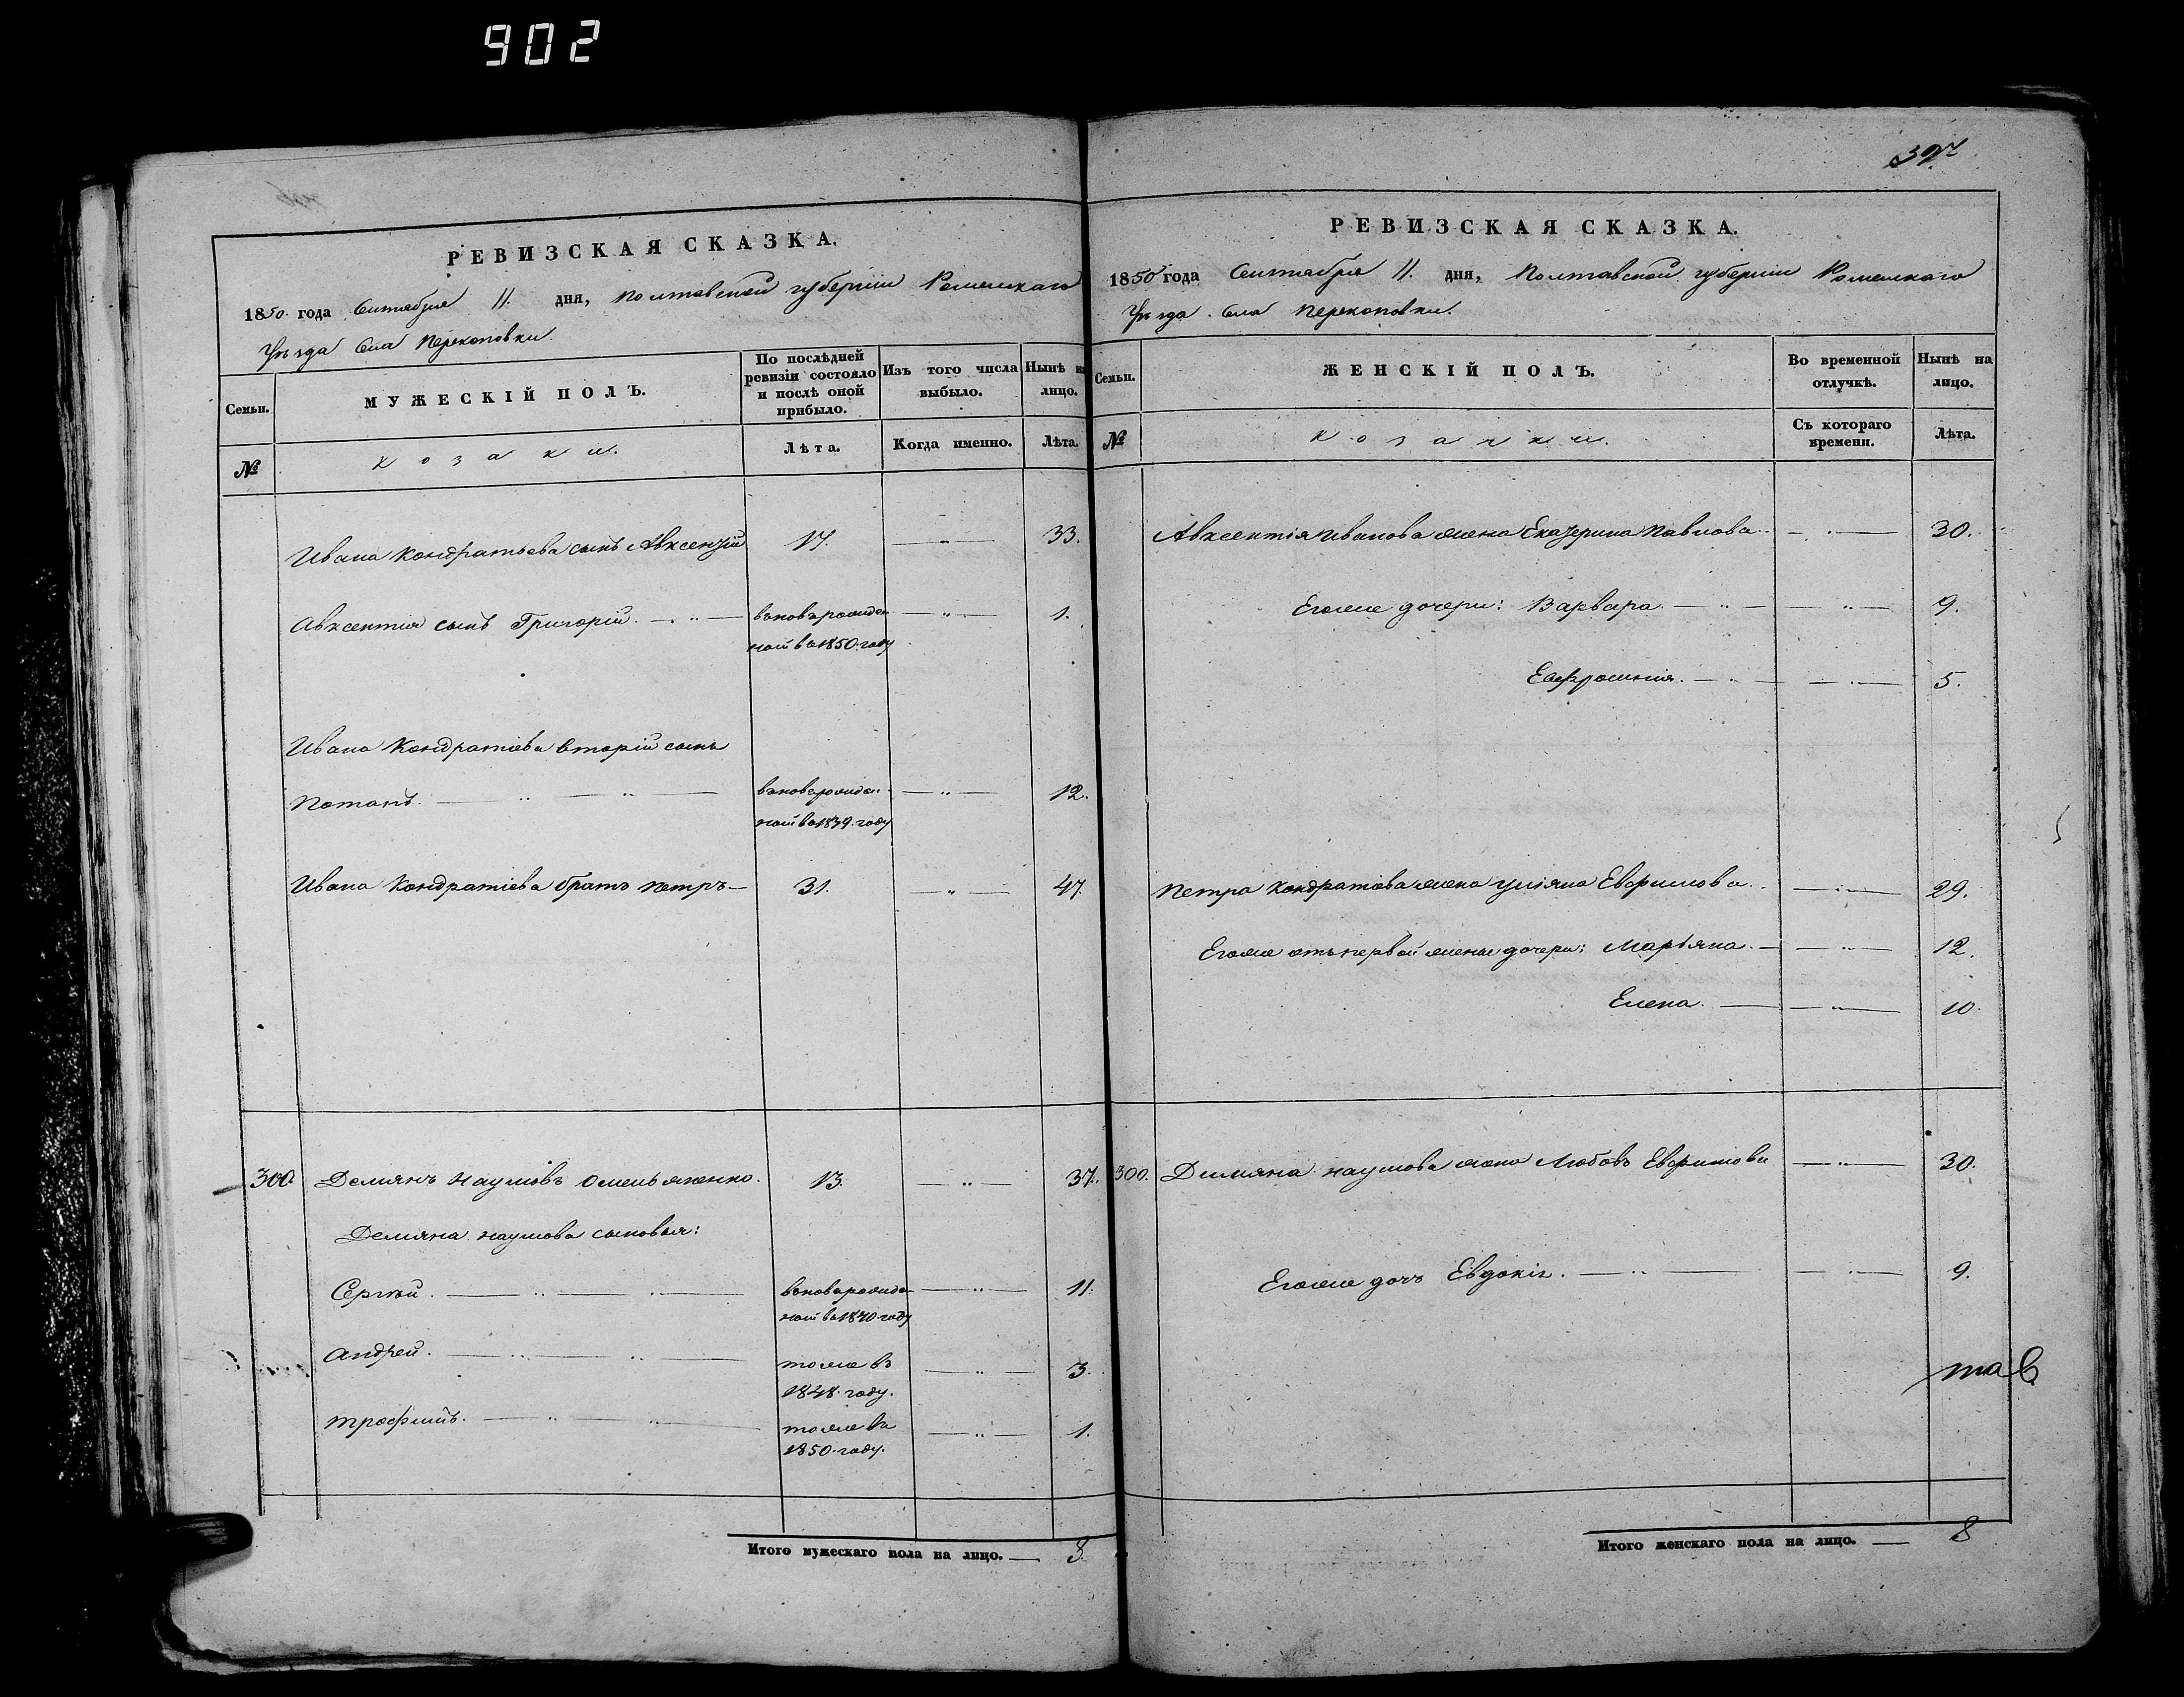 902
397
РЕВИЗСКАЯ СКАЗКА.
1850 года Сентября 11. дня, Полтавской губернии Роменскаго
Уѣзда Села Перекоповки.
Семьи.
МУЖЕСКІЙ ПОЛЪ.
По послѣдней ревизіи состояло и послѣ оной прибыло.
Изъ того числа выбыло.
Нынѣ на лицо.
№
козаки.
Лѣта.
Когда именно.
Лѣта.
Ивана Кондратьева сынъ Авксентій 17. —"— 33.
Авксентия сынъ Григорій. —"— вновьрожден —"— 1.
ной въ 1850. году
Ивана Кондратіева вторій сынъ
Потапъ. —"—"— вновьрожден —"— 12.
ной въ 1839. году
Ивана Кондратіева братъ Петръ — 31. —"— 47.
300. Демянъ Наумовъ Омельяненко. 13. —"— 37.
Демяна Наумова сыновья:
Сергѣй. —"—"— вновьрожден —"— 11.
ной въ 1840 году
Андрей. —"—"— тоже въ —"— 3.
1848. году.
Трофимъ. —"—"— тоже въ —"— 1.
1850. году.
Итого мужескаго пола на лицо. — 8
РЕВИЗСКАЯ СКАЗКА.
1850 года Сентября 11. дня, Полтавской губернии Роменскаго
Уѣзда Села Перекоповки.
Семьи.
ЖЕНСКІЙ ПОЛЪ.
Во временной отлучкѣ.
Нынѣ на лицо.
№
козачки.
Съ котораго времени.
Лѣта.
Авксентія Иванова жена Екатерина Павлова —"— 30.
Егоже дочери: Варвара. —"— —"— 9.
Евфросиния. —"— —"— 5.
Петра Кондратова жена Уліяна Евфимова —"— 29.
Егоже отъ первой жены дочери: Марьяна. — —"— 12.
Елена. — —"— 10.
300. Демяна Наумова жена Любовъ Евфимова —"— 30.
Егоже дочь Евдокія. —"— —"— 9.
Итого женскаго пола на лицо. — 8